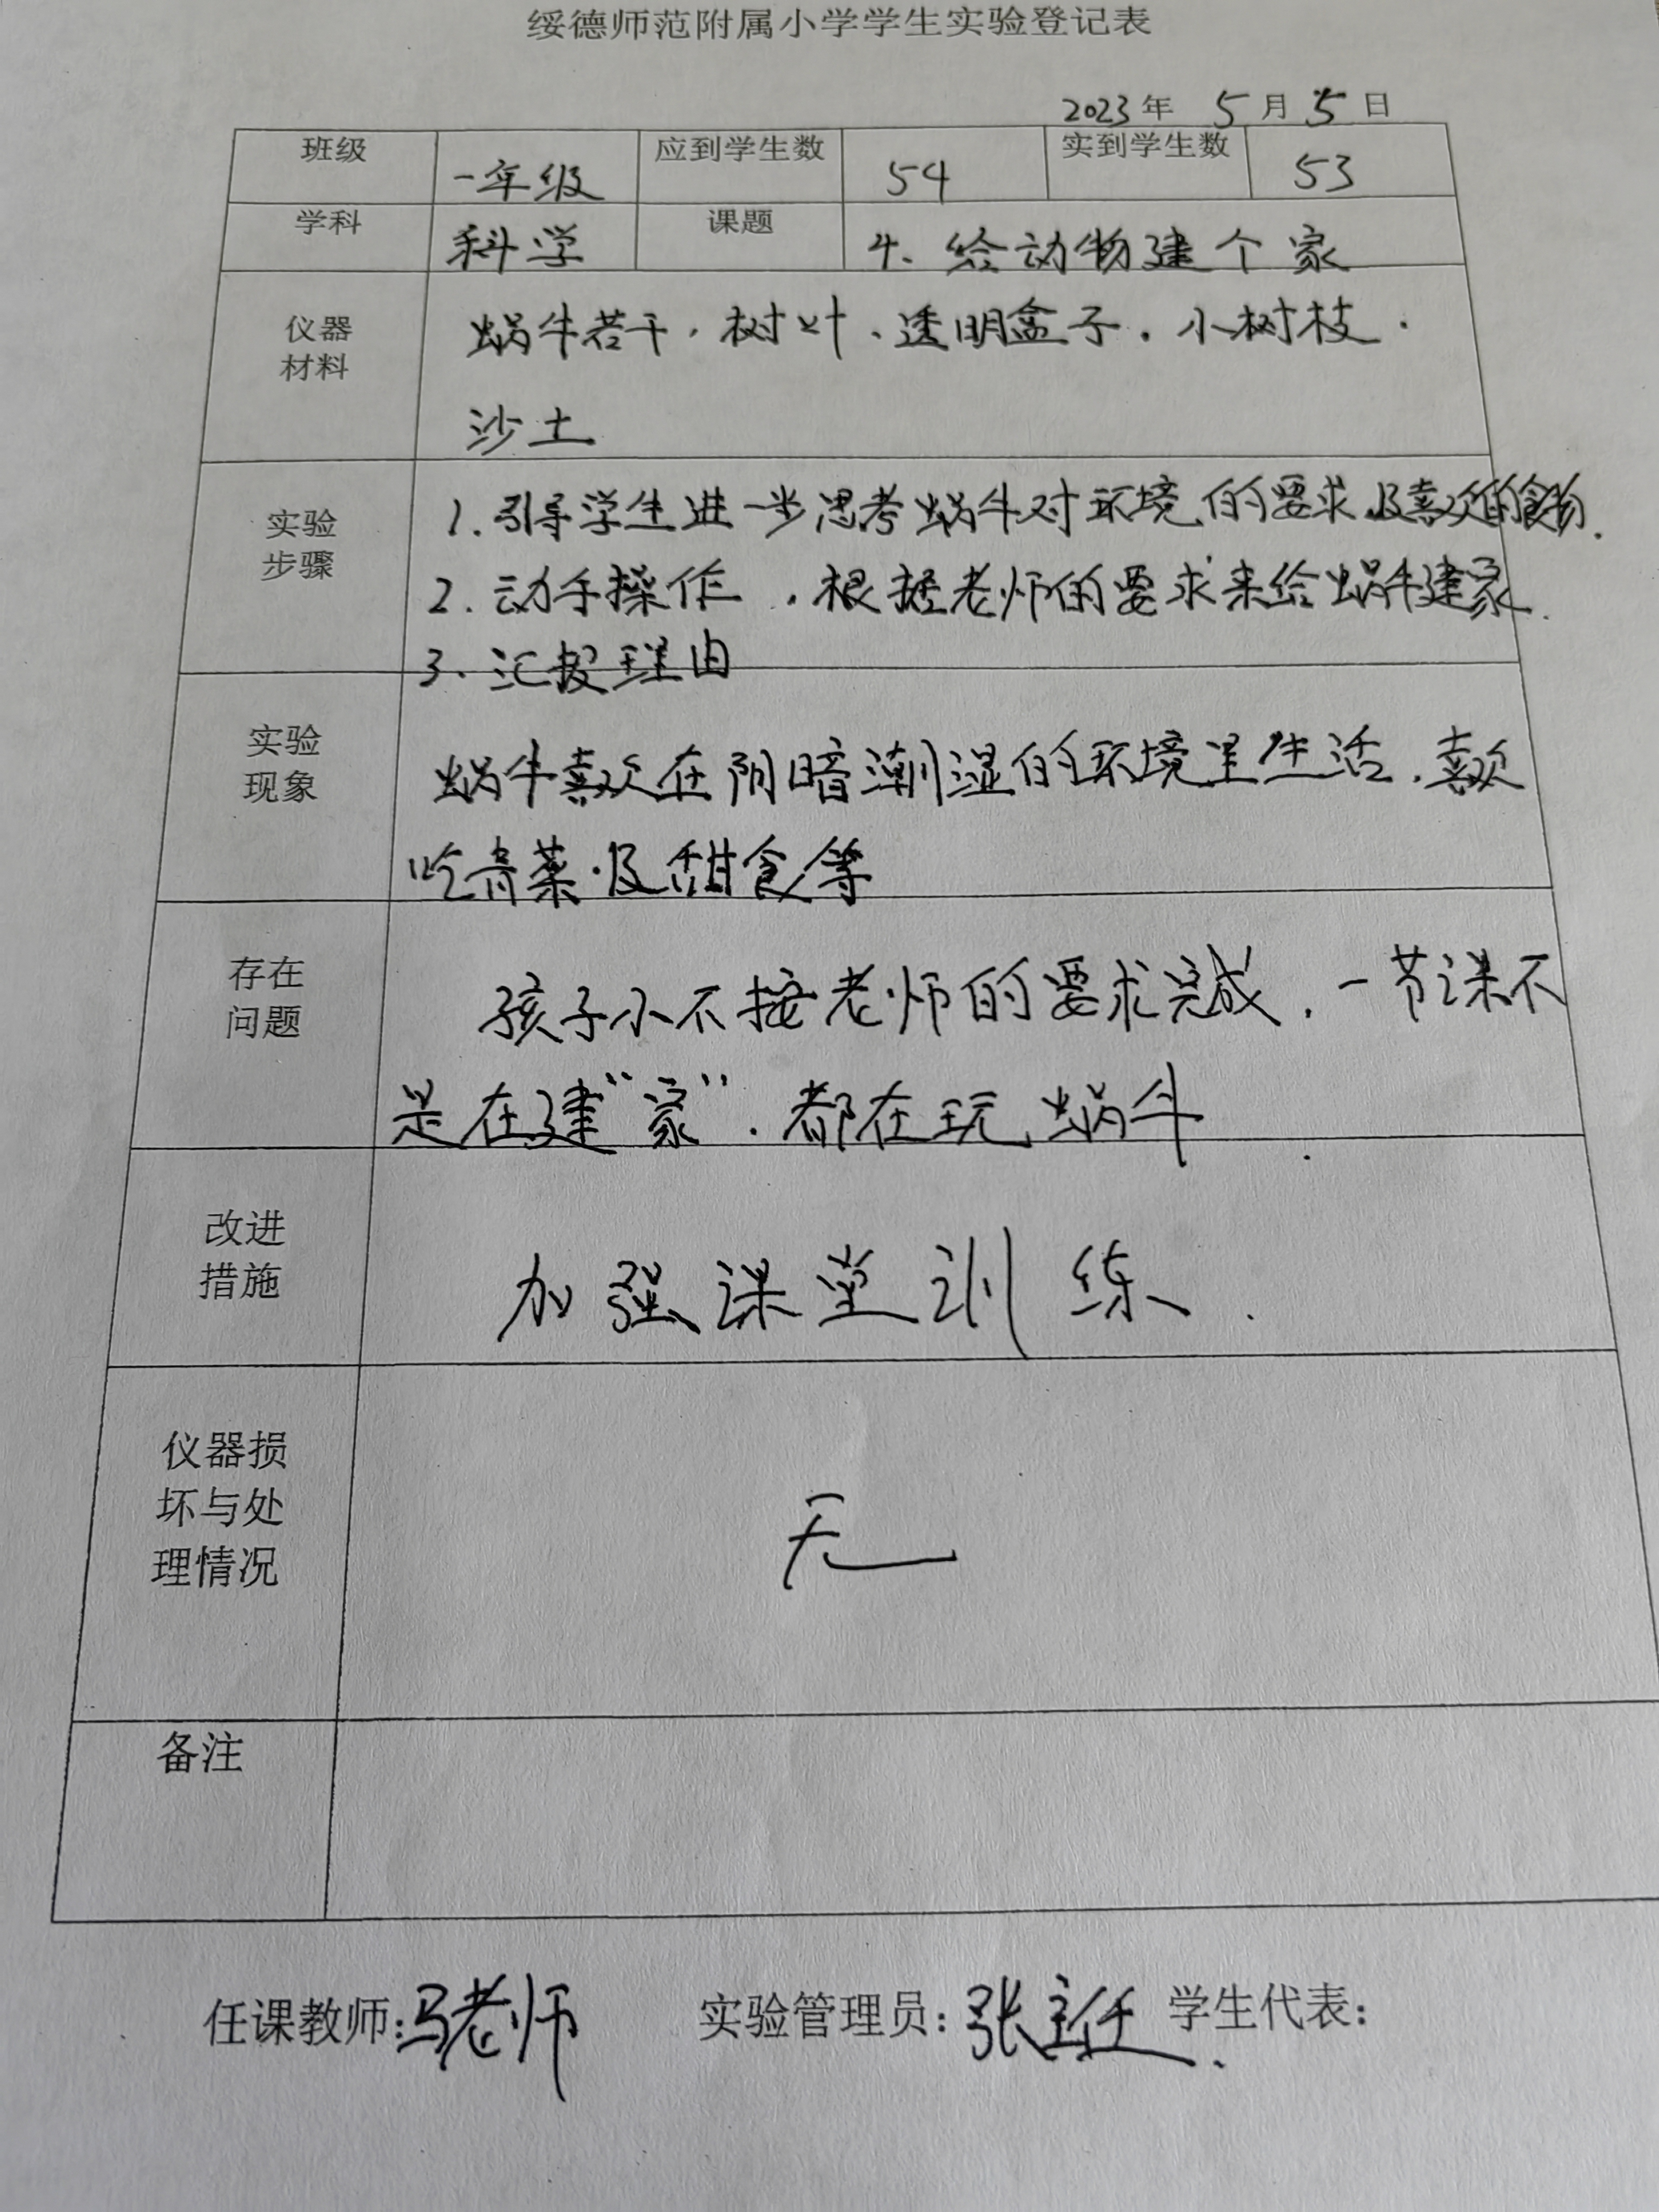 绥德师范附属小学学生实验登记表
2023年 5月5日
班级 一年级 应到学生数 54 实到学生数 53
学科 科学 课题 4、给动物建个家
仪器材料 蜗牛若干、树叶、透明盒子、小树枝、
沙土
实验步骤 1.引导学生进一步思考蜗牛对环境的要求及喜欢的食物.
2.动手操作,根据老师的要求来给蜗牛建家.
3.汇报理由
实验现象 蜗牛喜欢在阴暗潮湿的环境里生活,喜欢
吃青菜及甜食等
存在问题 孩子小不按老师的要求完成,一节课不
是在建“家”.都在玩蜗牛.
改进措施 加强课堂训练.
仪器损坏与处理情况 无
备注
任课教师:马老师 实验管理员:张主任. 学生代表: